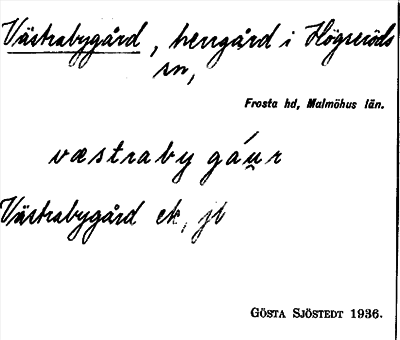 Västrabygård, herrgård i Högseröds
sn,
Frosta hd, Malmöhus län.
væstraby gáu̯r
Västrabygård ek, jb
GÖSTA SJÖSTEDT 1936.